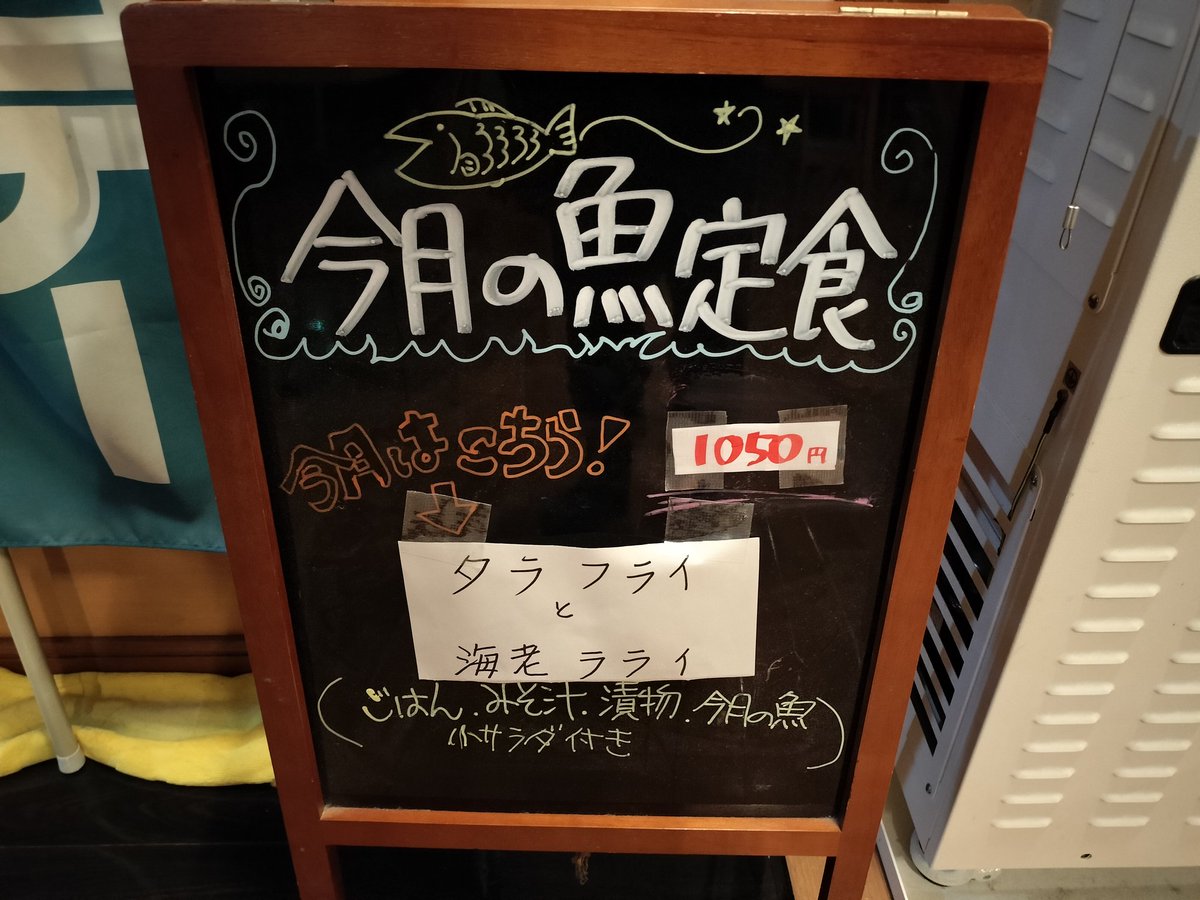 今月の魚定食
今月はこちら!
1050円
タラフライ
と
海老ラライ
(ごはん.みそ汁.漬物.今月の魚
小サラダ付き)